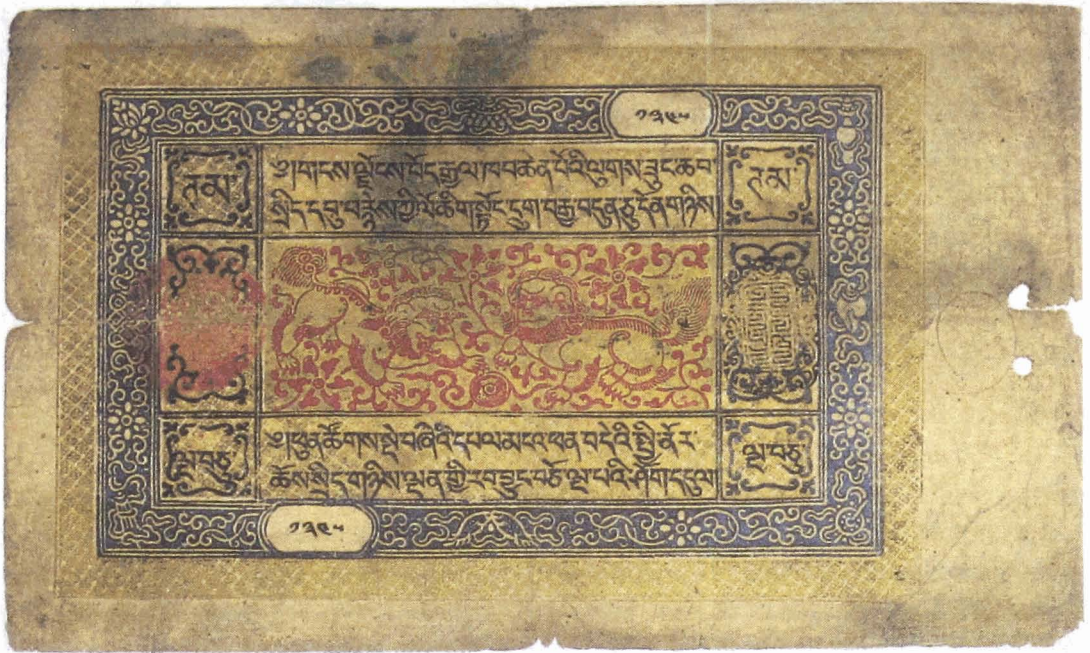 ཊམ་
༄། །གངས་ལྗོངས་བོད་རྒྱལ་ཁབ་ཆེན་པོའི་ལུགས་ཟུང་ཆབ་
ཊམ་
སྲིད་དབུ་བརྙེས་ཀྱི་ལོ་ཆིག་སྟོང་དྲུག་བརྒྱ་བདུན་ཅུ་དོན་གཉིས།
ལྔ་བཅུ
༄། །ཕུན་ཚོགས་སྡེ་བཞིའི་དཔལ་མངའ་ཕན་བདེའི་སྤྱི་ནོར་
ལྔ་བཅུ
ཆོས་སྲིད་གཉིས་ལྡན་གྱི་རབ་བྱུང་བཅོ་ལྔ་པའི་ཤོག་དངུལ